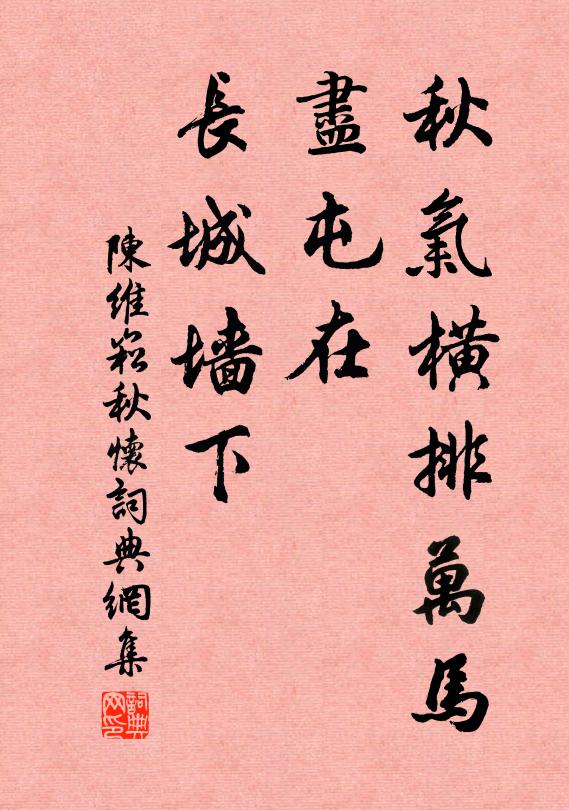 秋氣橫排萬馬
盡屯在
長城墙下
陳維崧秋懷詞典網集
詞典网印